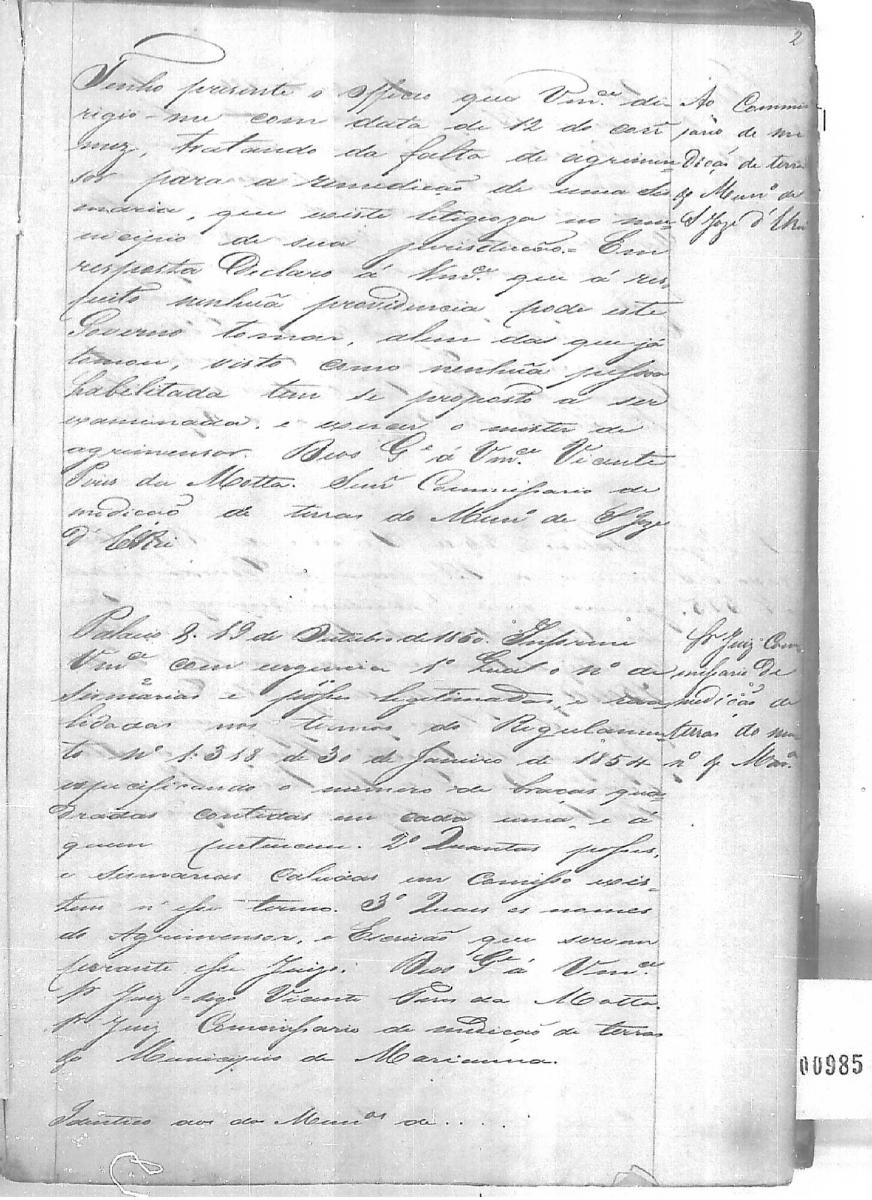 2
Tenho presente o officio que Vm.ce di-
rigio-me com data de 12 do corr
mez, tratando da falta de agrimen-
sor para a remedição de uma Se
maria, que existe litigioza no mu-
nicipio de sua jurisdicção. Em
resposta Declaro á Vm.ce que á res-
peito nenhuã providencia pode este
Governo tomar, alem das que já
tomou, visto como nenhuã pessoa
habilitada tem se proposto a ser
examinada e exercer o mister de
agrimensor. Deos G.e á Vm.ce Vicente
Pires da Motta. Senr Commissario de
medicão de terras do Mun.o de S Joze
d'
Ao Commis
sario de me
dição de terra
do Mun.o de
S Joze d'
Palacio 19 de Outubro de 1860. Informe
Vm.ce com urgencia 1.o Qual o n.o de
sesmarias e posses legitimadas, e reva
lidadas nos termos do Regulamen
to N.o 1.318 de 30 de Janeiro de 1854
especificando o numero de bracas qua-
dradas contidas em cada uma, e á
quem pertencem. 2.o Quantas posses,
e Sesmarias cahidas em Comisso exis-
tem n'esse termo. 3.o Quaes os nomes
do Agrimensor, e Escrivão que servem
perante esse Juizo. Deos G.e á Vm.ce
Sr. Juiz digo Vicente Pires da Motta.
Sr. Juiz Commissario de medicão de terras
do Municipio de Marianna.
Sr. Juiz Com
missario de
medicão de
terras do mu
n.o de Mar.a
Identico aos dos Mun.os de . . . . .
00985